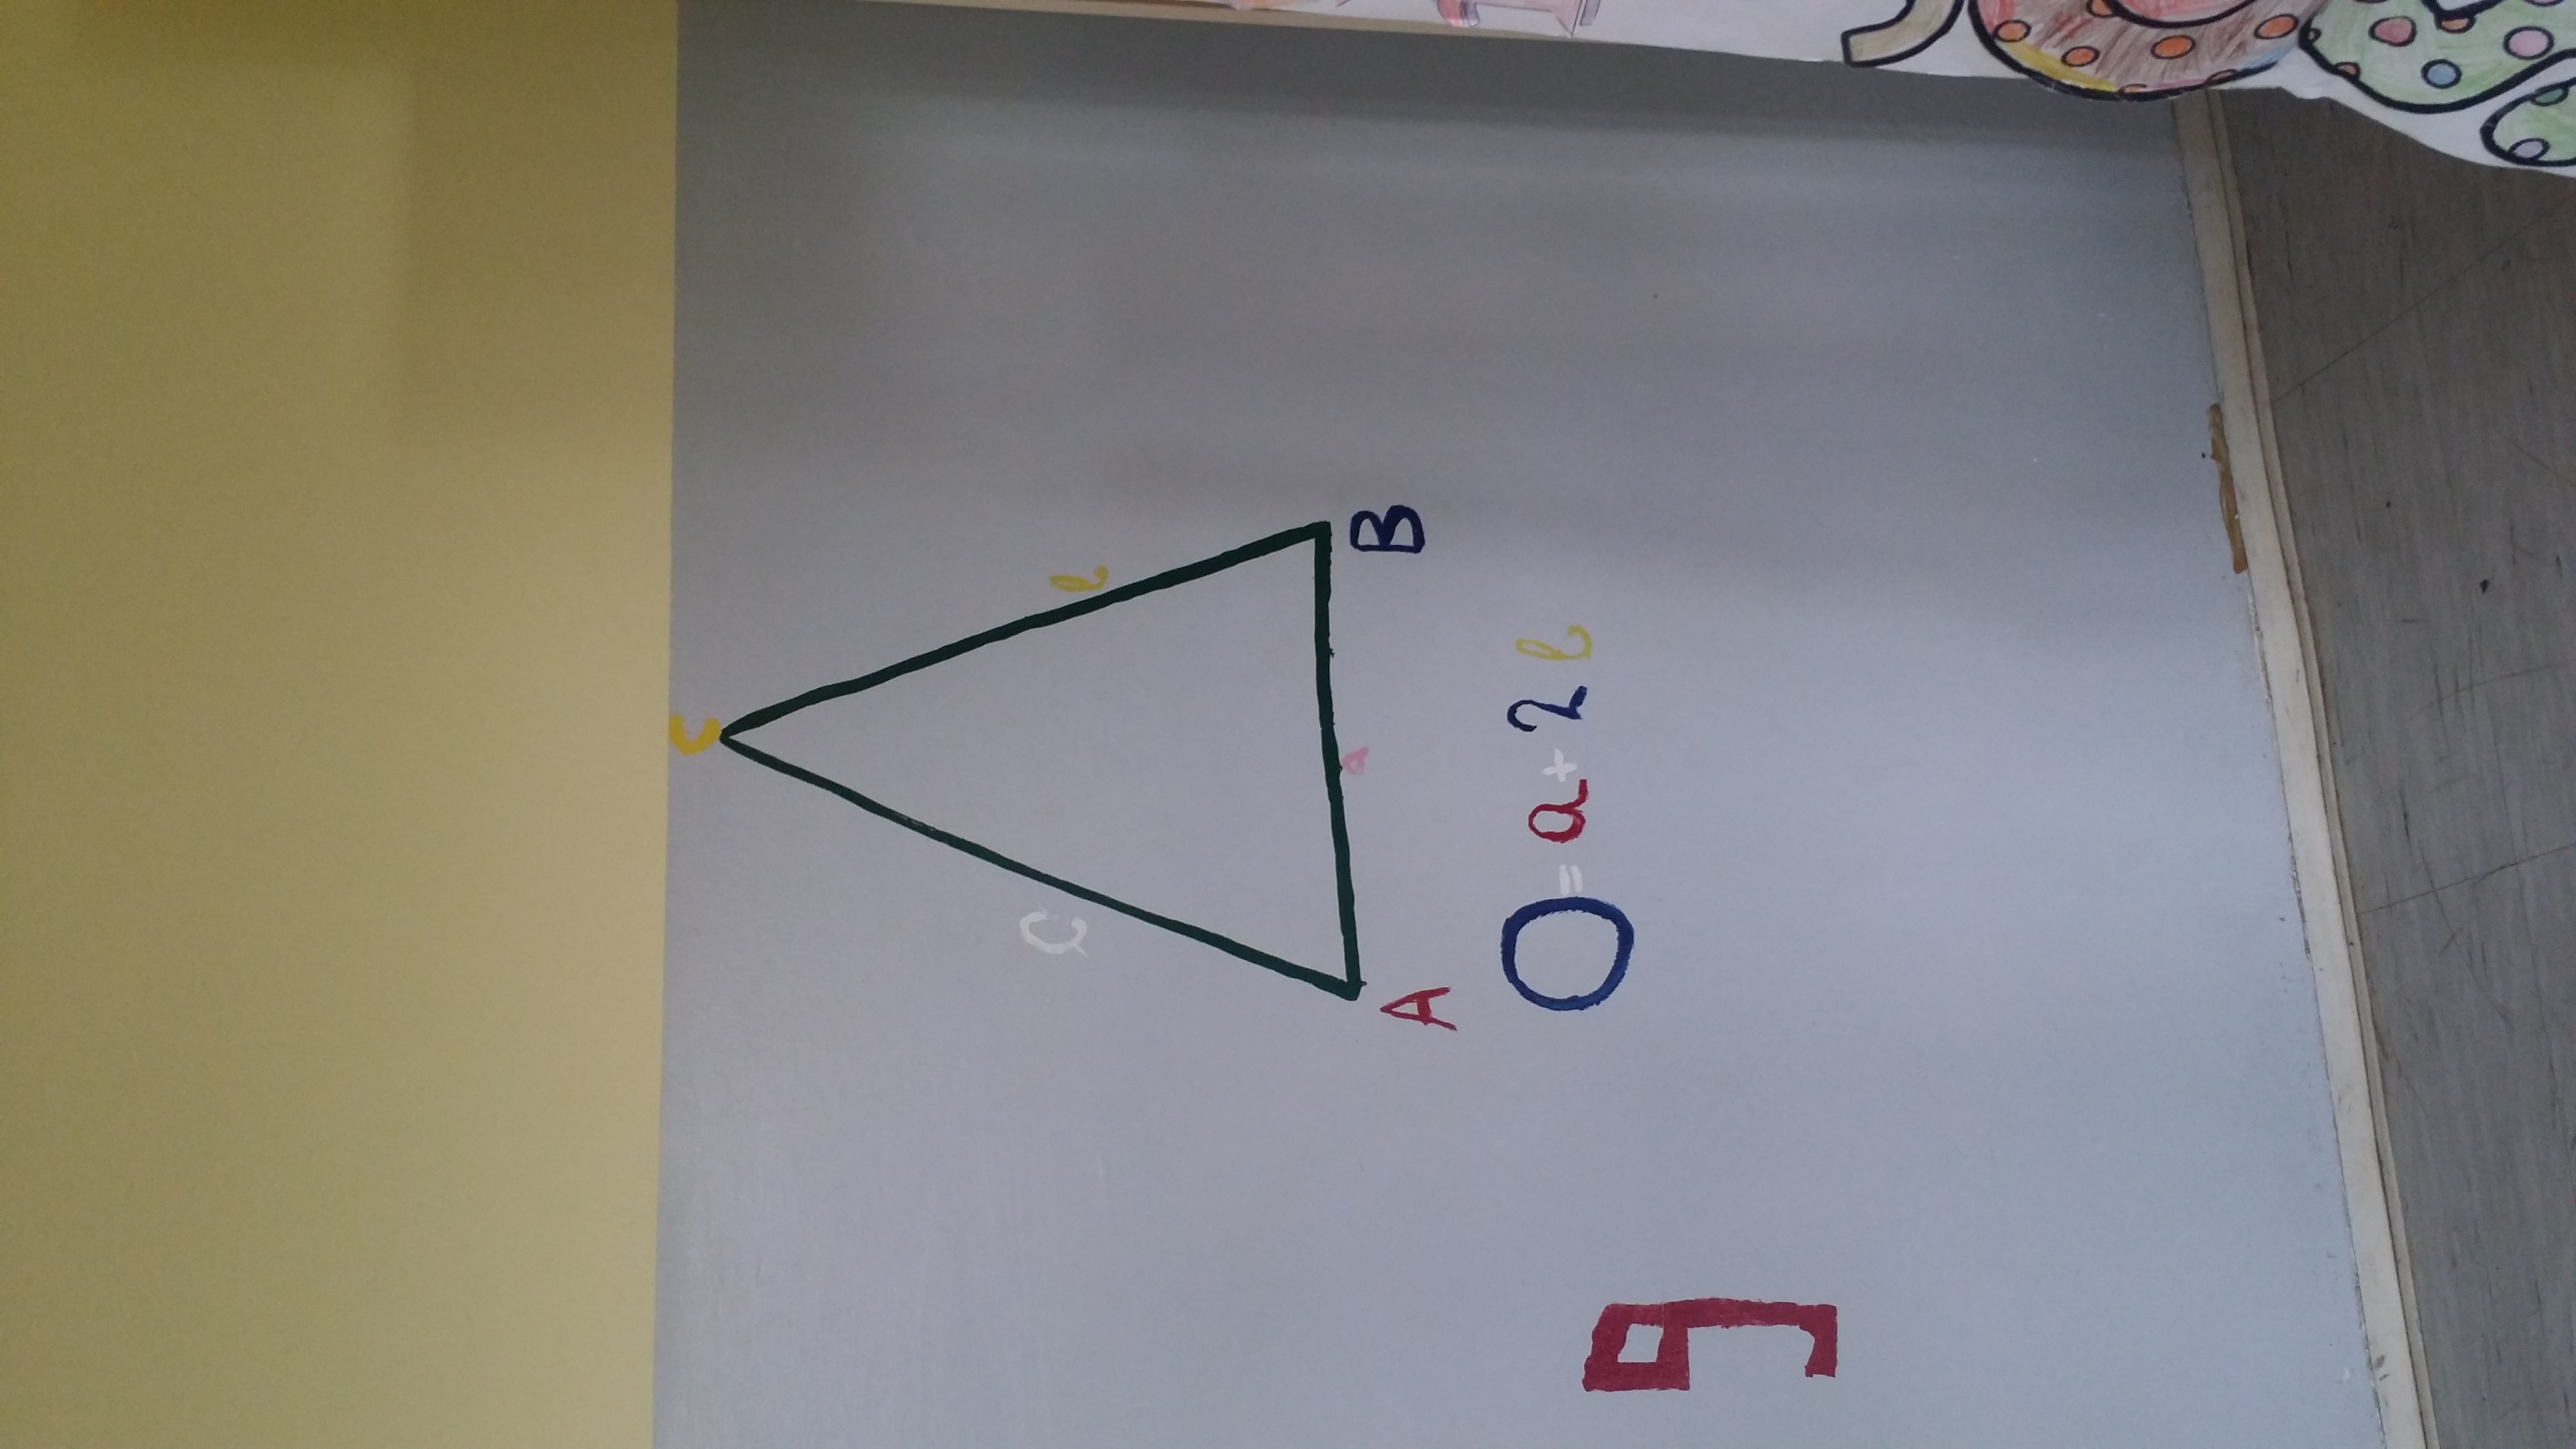 C
C b
a
A B
O = a + 2b
9